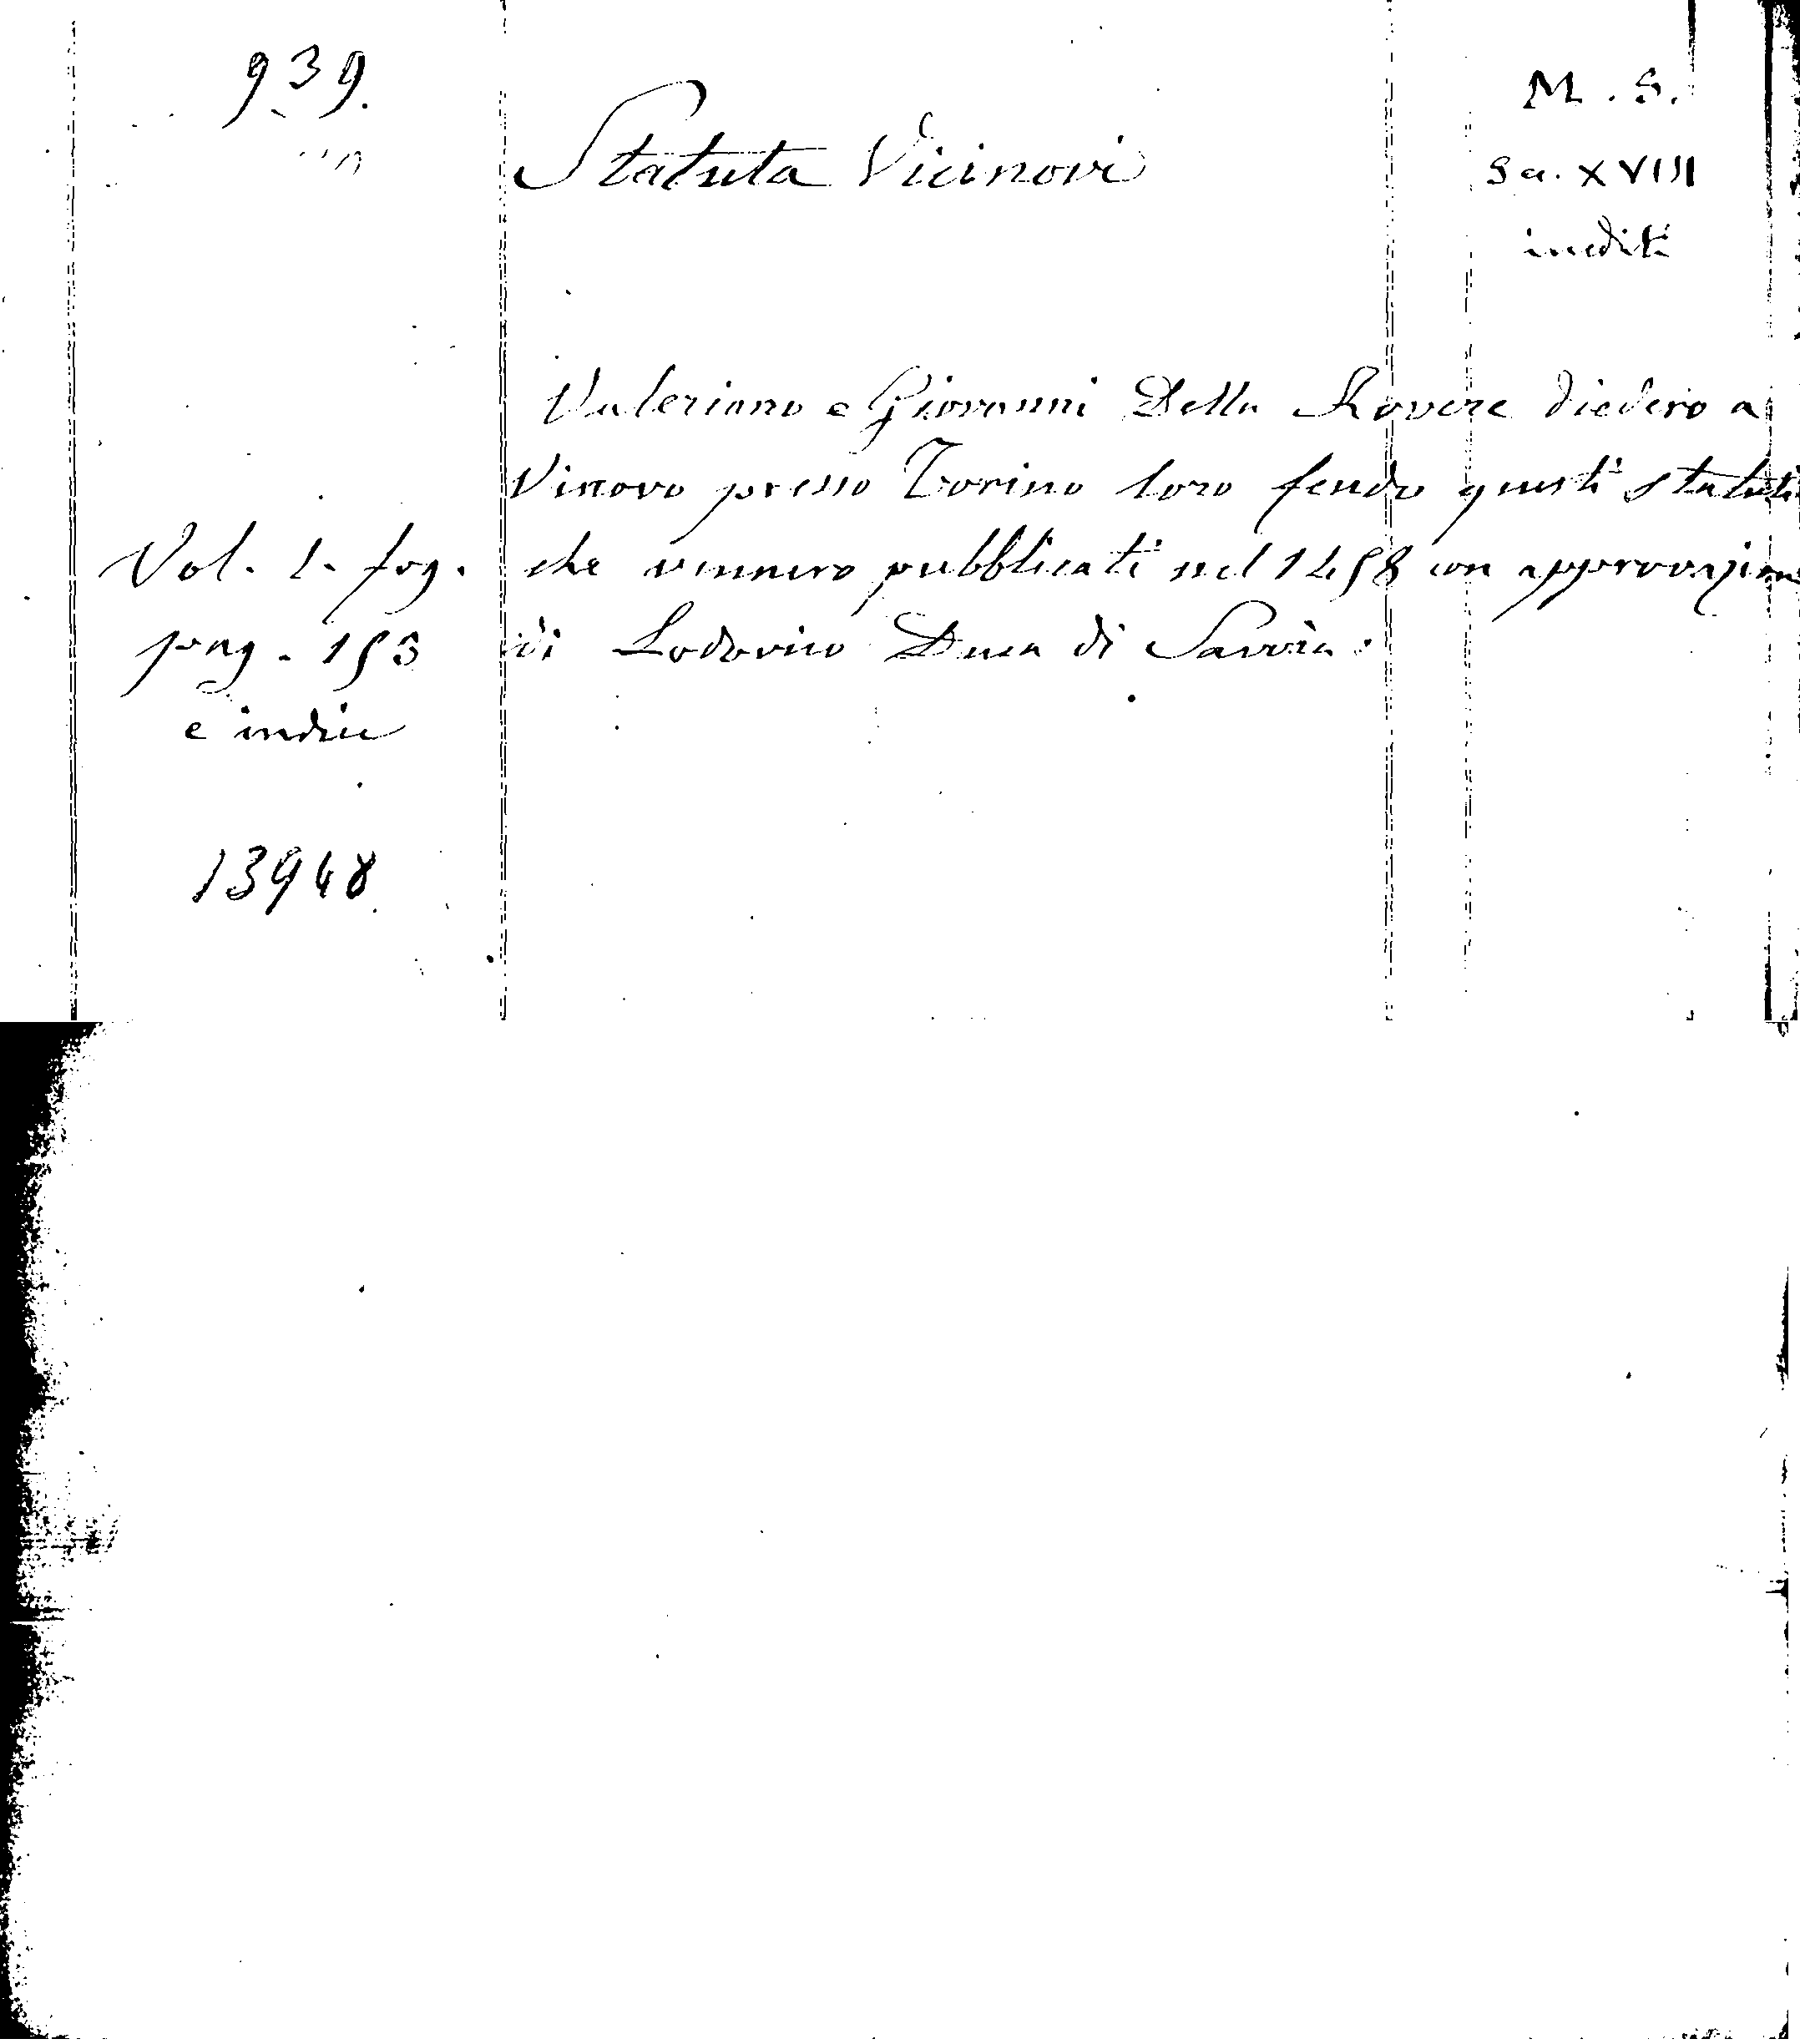 939.
Statuta Vicinovi
M. S.
Sec. XVIII
inediti
Valeriano e Giovanni Della Rovere diedero a
Vinovo presso Torino loro feudo questi statuti
che vennero pubblicati nel 1458 con approvazione
di Lodovico Duca di Savoia.
Vol. 1. fog.
pag. 153
e indice
13948